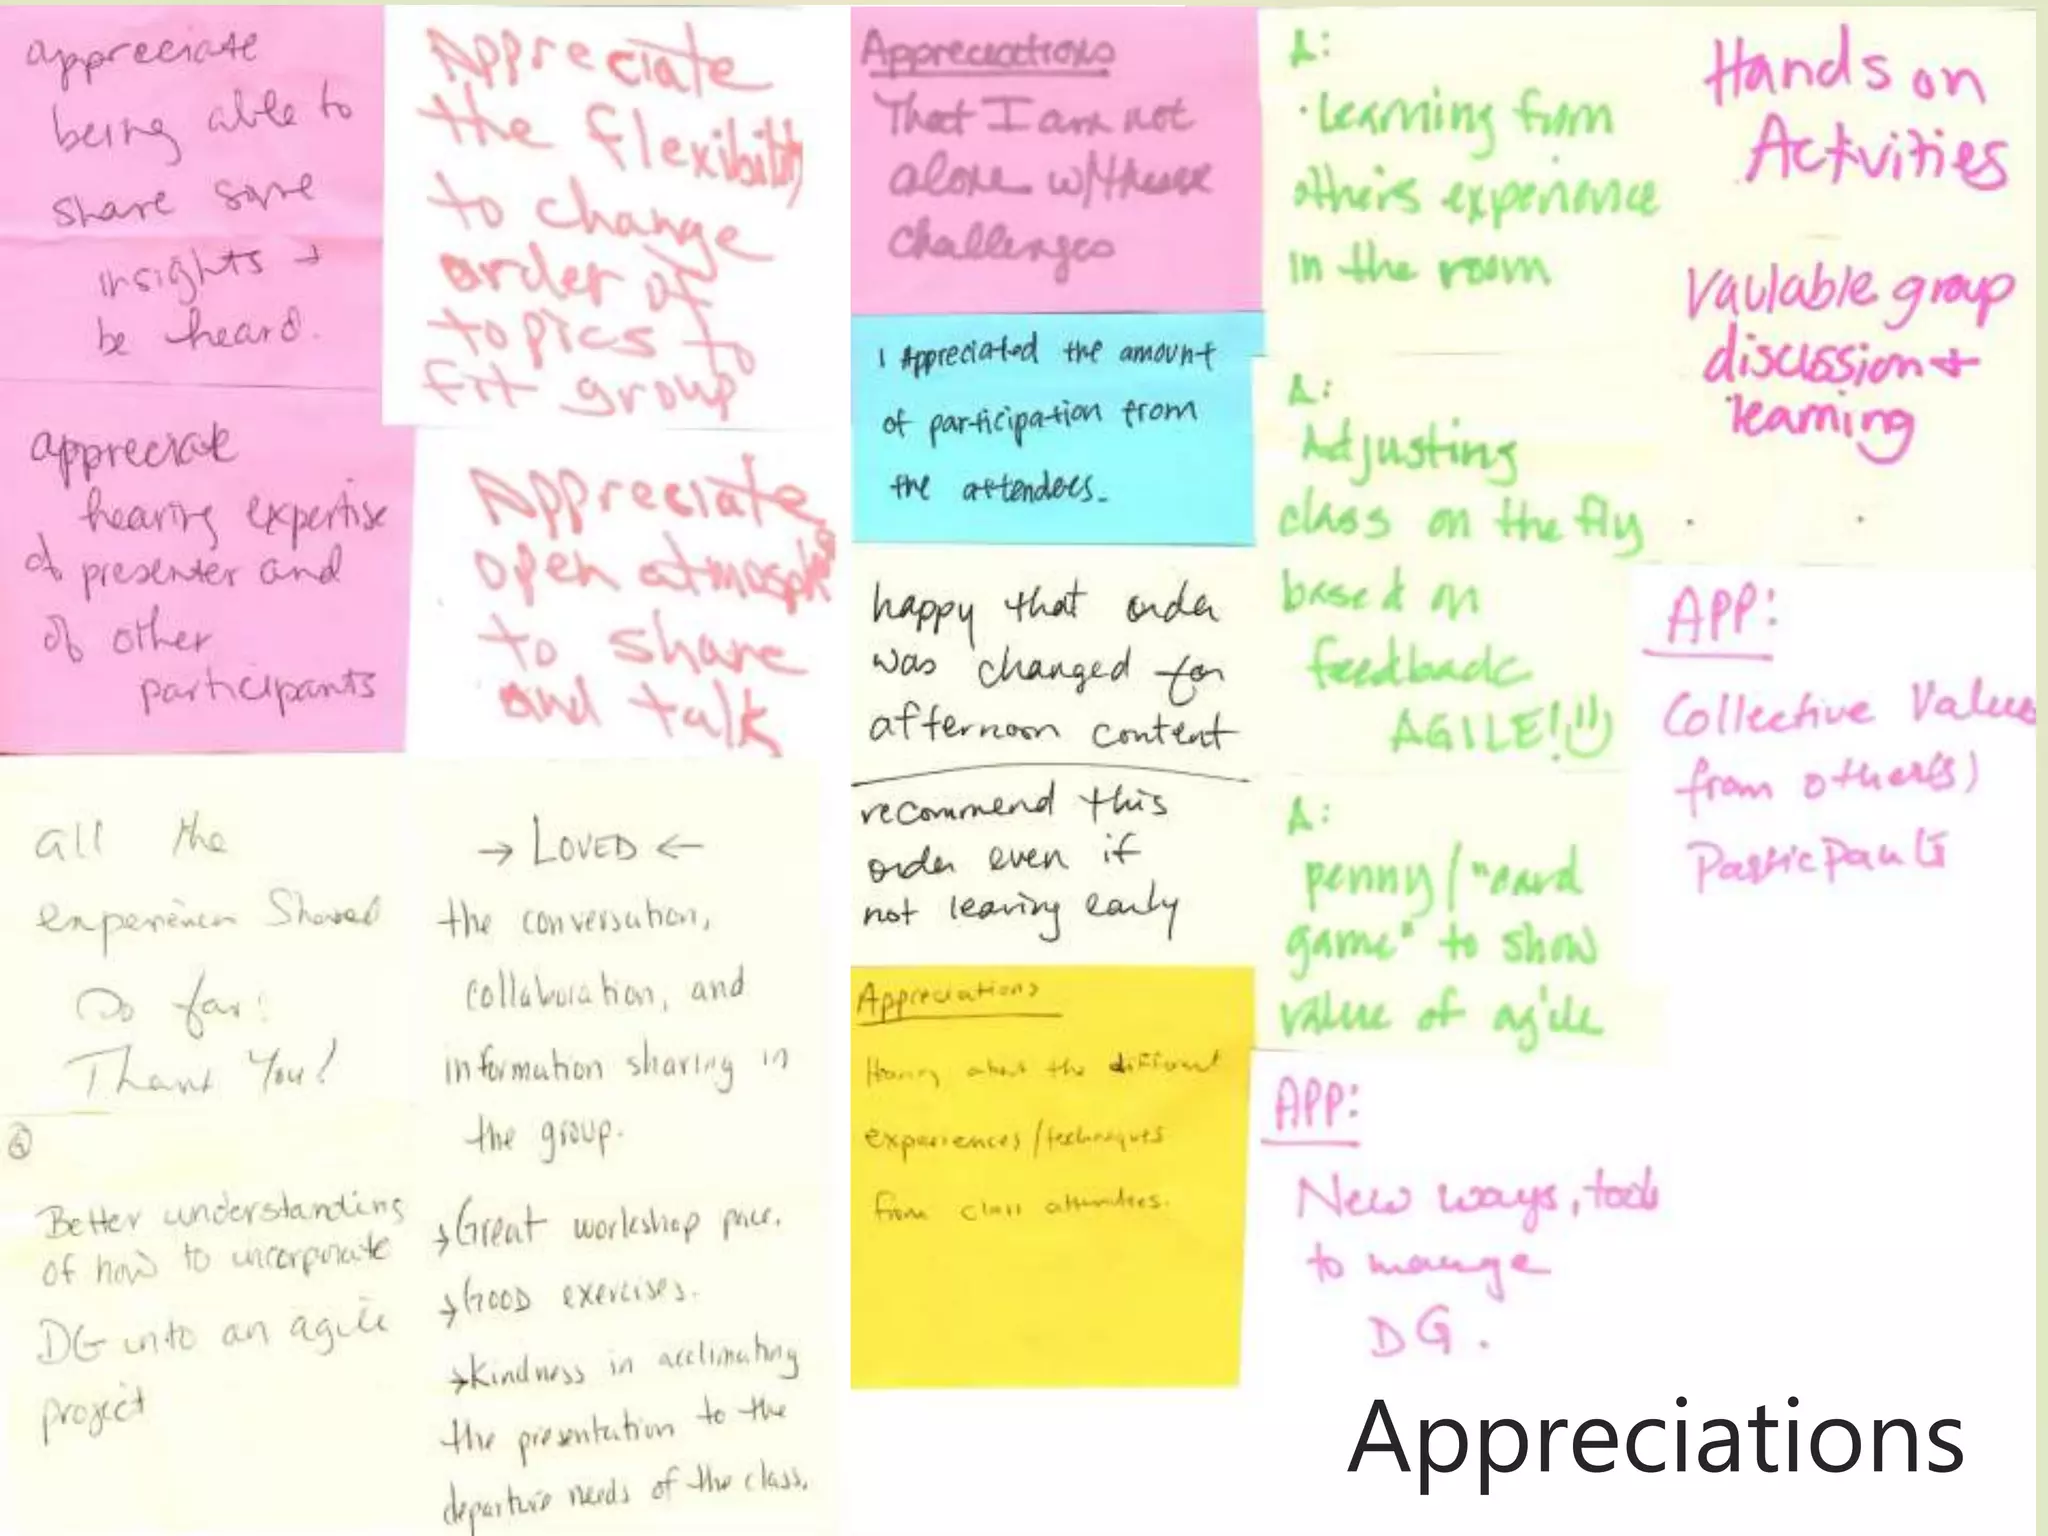 appreciate
being able to
share some
insights +
be heard.
appreciate
hearing expertise
of presenter and
of other
participants
all the
experiences Shared
So far!
Thank You!
Better understanding
of how to incorporate
DG into an agile
project
Appreciate
the flexibility
to change
order of
topics to
fit group
Appreciate
open atmosphere
to share
and talk
→ LOVED ←
the conversation,
collaboration, and
information sharing in
the group.
→ Great workshop pace.
→ GOOD exercises.
→ Kindness in acclimating
the presentation to the
departure needs of the class.
Appreciations
That I am not
alone w/these
challenges
I Appreciated the amount
of participation from
the attendees.
happy that order
was changed for
afternoon content
recommend this
order even if
not leaving early
Appreciations
Hearing about the different
experiences/techniques
from class attendees.
A:
· Learning from
others experience
in the room
A:
Adjusting
class on the fly
based on
feedback
AGILE!
A:
penny/"card
game" to show
value of agile
APP:
New ways, tools
to manage
DG.
Hands on
Activities
Vaulable group
discussion +
learning
APP:
Collective Values
from other(s)
Participants
Appreciations